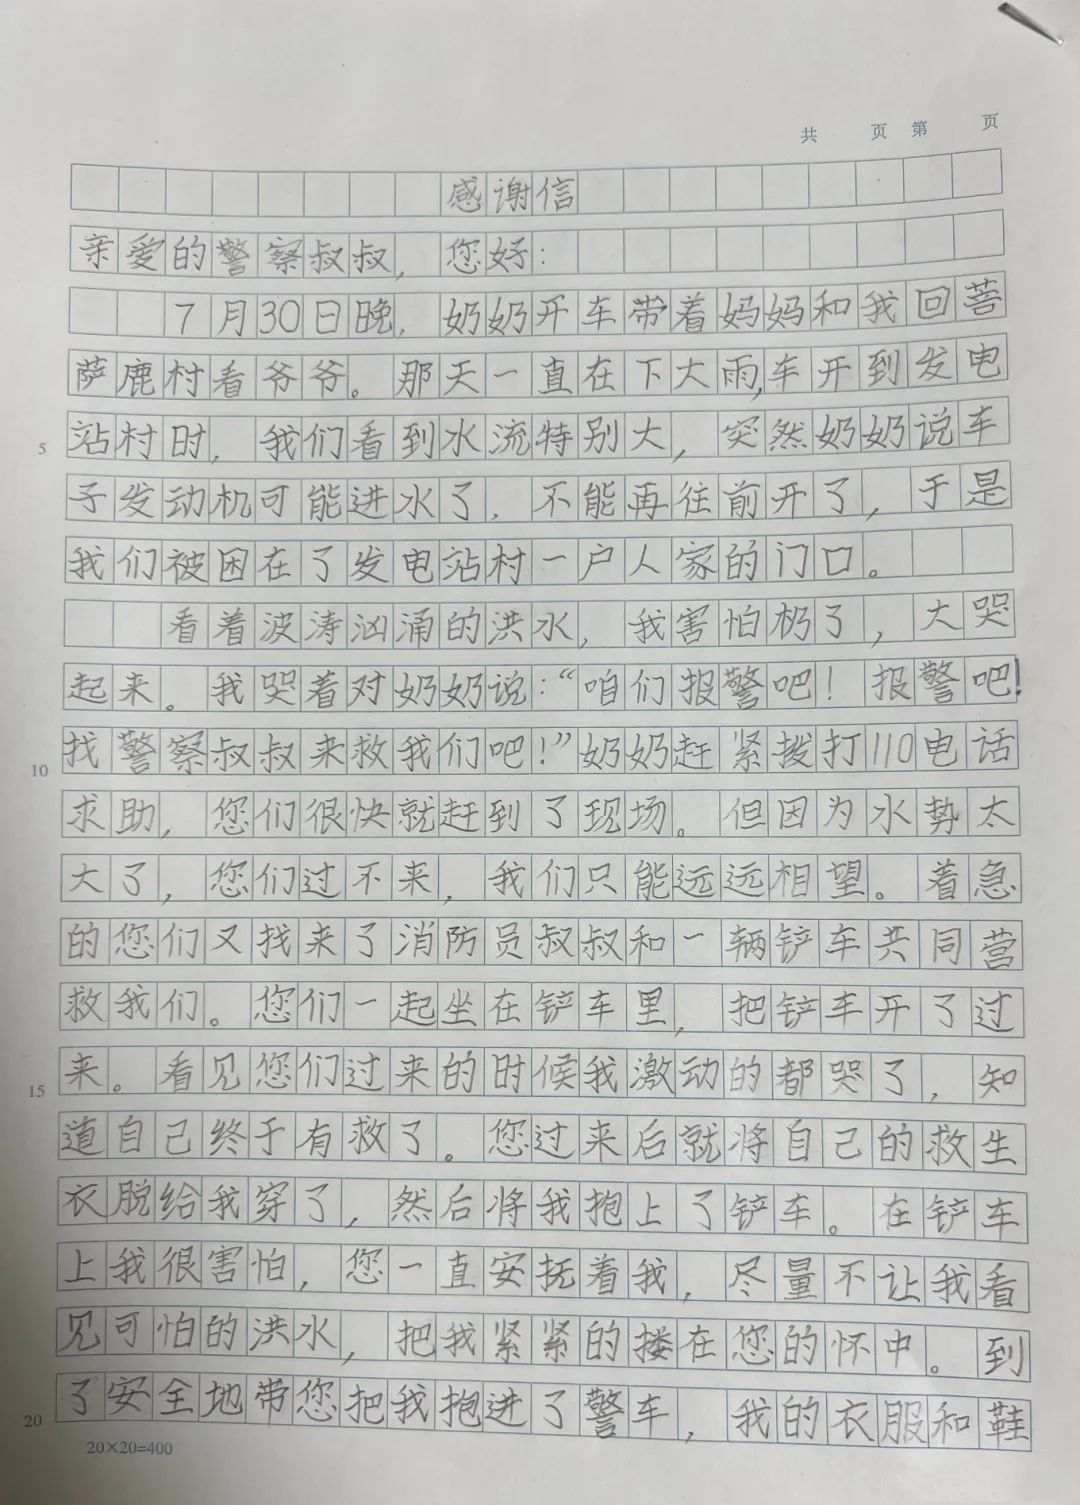 共 页 第 页
感谢信
亲爱的警察叔叔，您好：
7月30日晚，奶奶开车带着妈妈和我回菩
萨鹿村看爷爷。那天一直在下大雨,车开到发电
5 站村时，我们看到水流特别大，突然奶奶说车
子发动机可能进水了，不能再往前开了，于是
我们被困在了发电站村一户人家的门口。
看着波涛汹涌的洪水，我害怕极了，大哭
起来。我哭着对奶奶说：“咱们报警吧！报警吧！
10 找警察叔叔来救我们吧！”奶奶赶紧拨打110电话
求助，您们很快就赶到了现场。但因为水势太
大了，您们过不来，我们只能远远相望。着急
的您们又找来了消防员叔叔和一辆铲车共同营
救我们。您们一起坐在铲车里，把铲车开了过
15 来。看见您们过来的时候我激动的都哭了，知
道自己终于有救了。您过来后就将自己的救生
衣脱给我穿了，然后将我抱上了铲车。在铲车
上我很害怕，您一直安抚着我，尽量不让我看
见可怕的洪水，把我紧紧的搂在您的怀中。到
20 了安全地带您把我抱进了警车，我的衣服和鞋
20×20=400